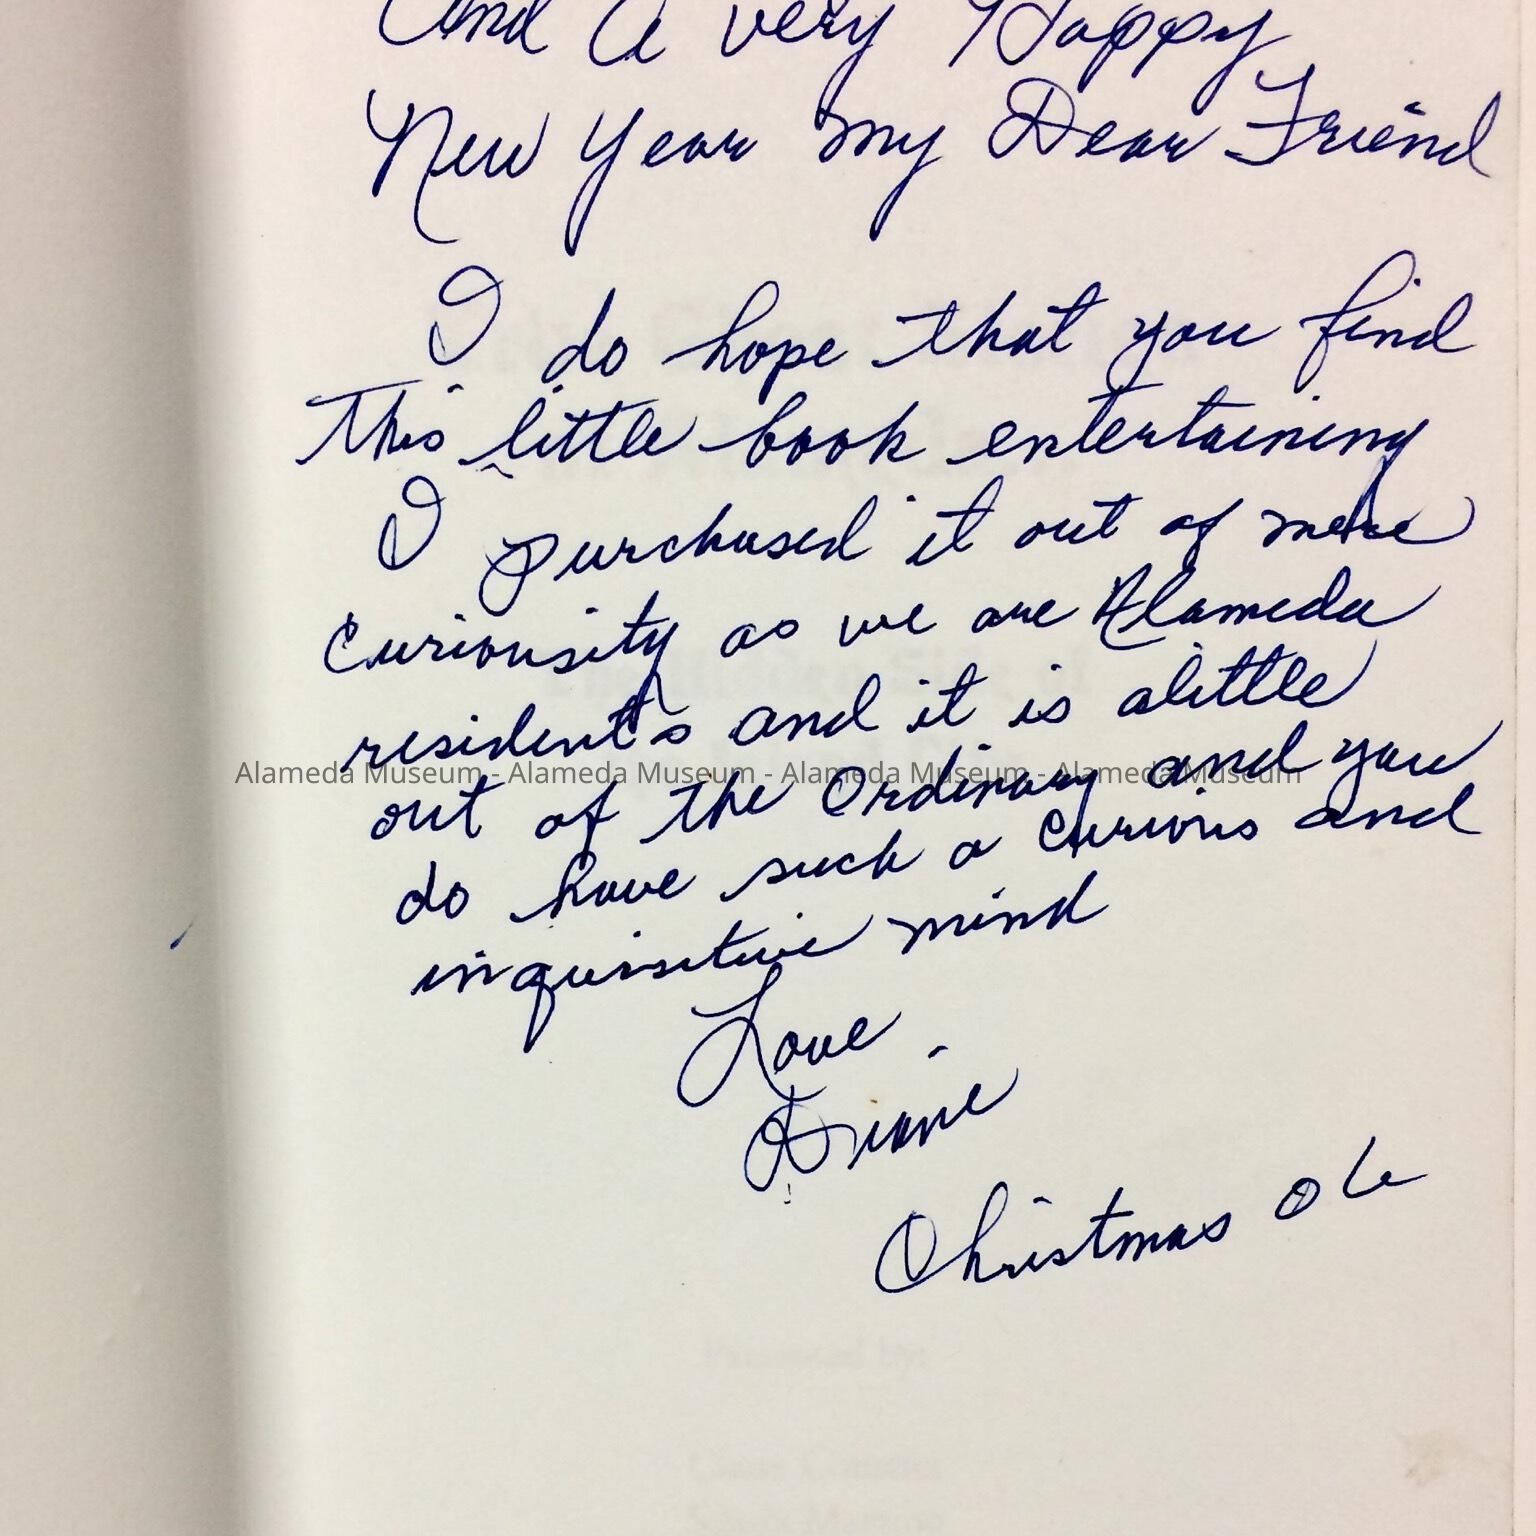 And A very Happy
New Year my Dear Friend
I do hope that you find
This little book entertaining
I purchased it out of mere
Curiousity as we are Alameda
residents and it is alittle
Alameda Museum - Alameda Museum - Alameda Museum - Alameda Museum
out of the Ordinary and you
do have such a Curious and
inquisitive mind
Love
Diane
Christmas 06